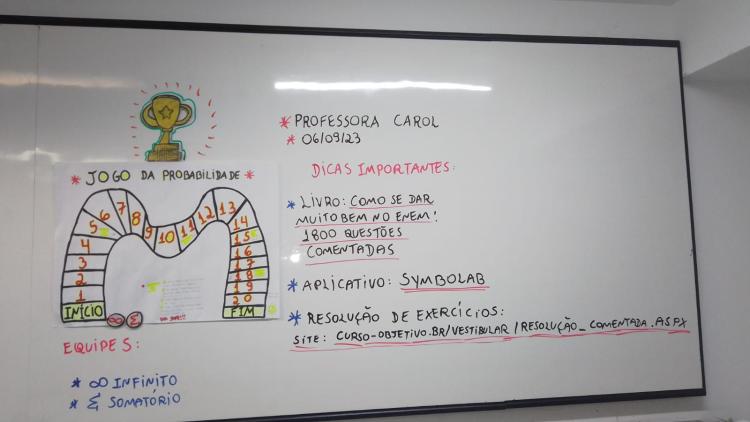 * JOGO DA PROBABILIDADE *
INÍCIO
1
2
3
4
5
6
7
8
9
10
11
12
13
14
15
16
17
18
19
20
FIM
∞ Σ
EQUIPES:
* ∞ INFINITO
* Σ SOMATÓRIO
* PROFESSORA CAROL
* 06/09/23
DICAS IMPORTANTES:
* LIVRO: COMO SE DAR
MUITO BEM NO ENEM!
1800 QUESTÕES
COMENTADAS
* APLICATIVO: SYMBOLAB
* RESOLUÇÃO DE EXERCÍCIOS:
SITE: CURSO-OBJETIVO.BR/VESTIBULAR/RESOLUÇÃO_COMENTADA.ASPX